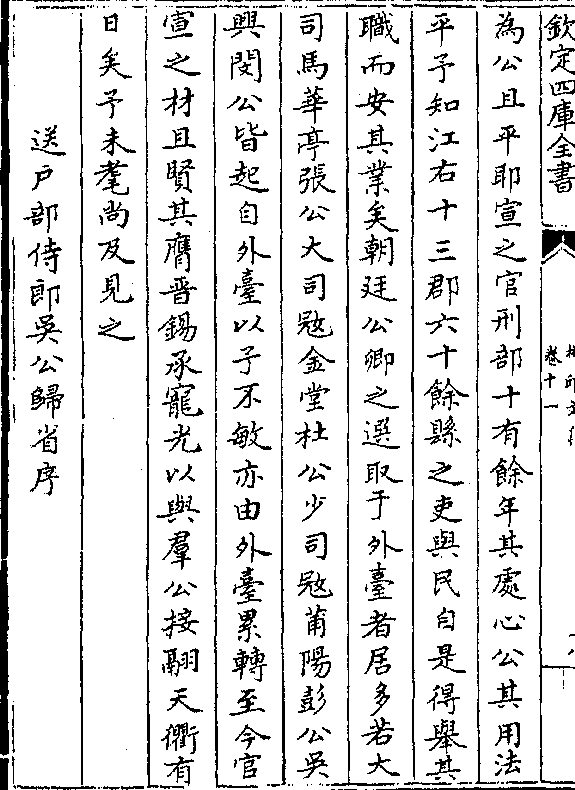 欽定四庫全書
卷十一
為公且平耶宣之官刑部十有餘年其處心公其用法
平予知江右十三郡六十餘縣之吏與民自是得舉其
職而安其業矣朝廷公卿之選取于外臺者居多若大
司馬華亭張公大司寇金堂杜公少司寇莆陽彭公吳
興閔公皆起自外臺以予不敏亦由外臺累轉至今官
宣之材且賢其膺晉錫承寵光以與羣公接翮天衢有
日矣予未耄尚及見之
送戶部侍郎吳公歸省序